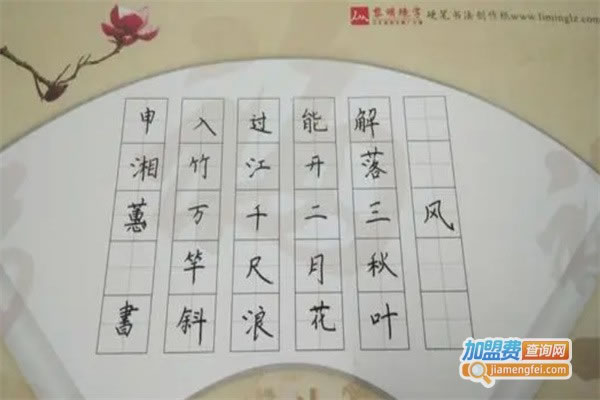 黎明练字 硬笔书法创作纸www.liminglz.com
风
解落三秋叶
能开二月花
过江千尺浪
入竹万竿斜
申湘蕙 書
加盟费查询网
jiamengfei.com